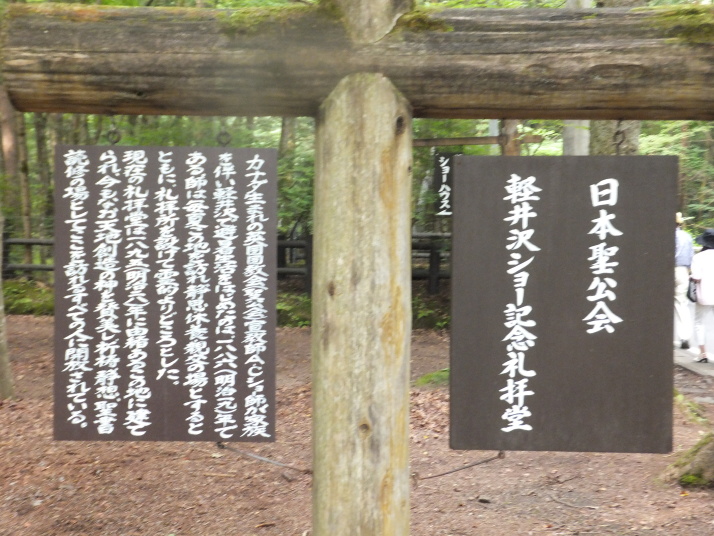 日本聖公会
軽井沢ショー記念礼拝堂
ショーハウス
カナダ生まれの英国国教会の宣教師A・C・ショー師が家族
を伴い軽井沢で避暑生活をはじめたのは一八八六(明治一九)年で
ある師は毎夏この地を訪れ静思休養親交の場とすると
ともに、礼拝所を設けて霊的よりどころとした。
現在の礼拝堂は一八九五(明治二八)年に由緒あるこの地に建て
られ今もなお天地創造の神を賛美し祈祷、静思、聖書
読修の場としてここを訪れるすべての人に開放されている。